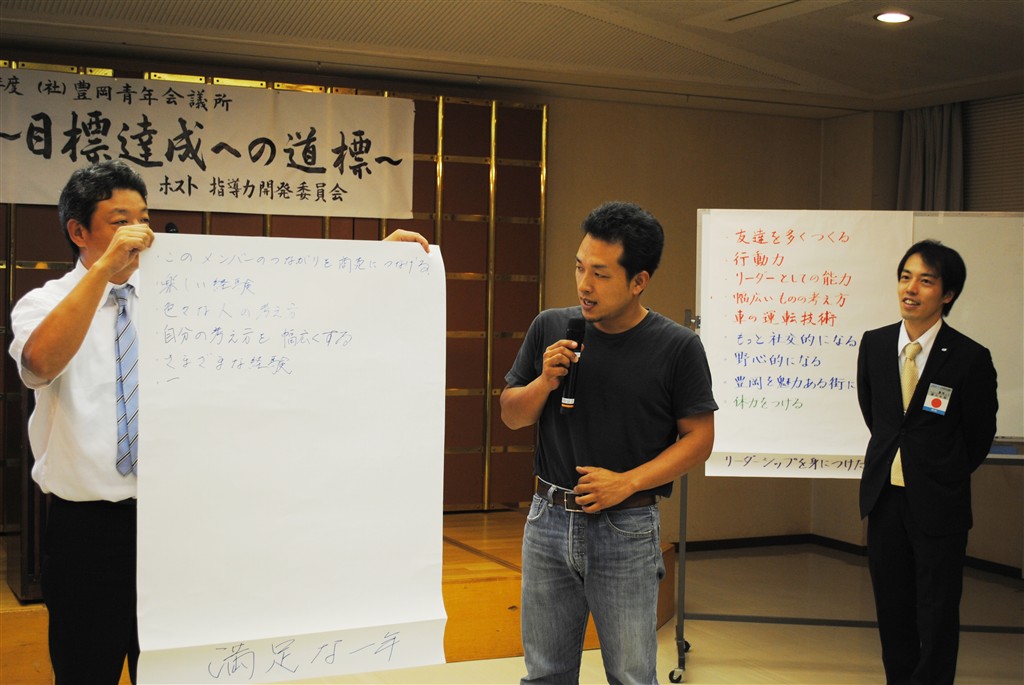 年度 (社)豊岡青年会議所
～目標達成への道標～
ホスト 指導力開発委員会
・このメンバーのつながりを商売につなげる
・楽しい経験
・色々な人の考え方
・自分の考え方を幅広くする
・さまざまな経験
・一
満足な一年
・友達を多くつくる
・行動力
・リーダーとしての能力
・幅広いものの考え方
・車の運転技術
・もっと社交的になる
・野心的になる
・豊岡を魅力ある街に
・体力をつける
リーダーシップを身につけた